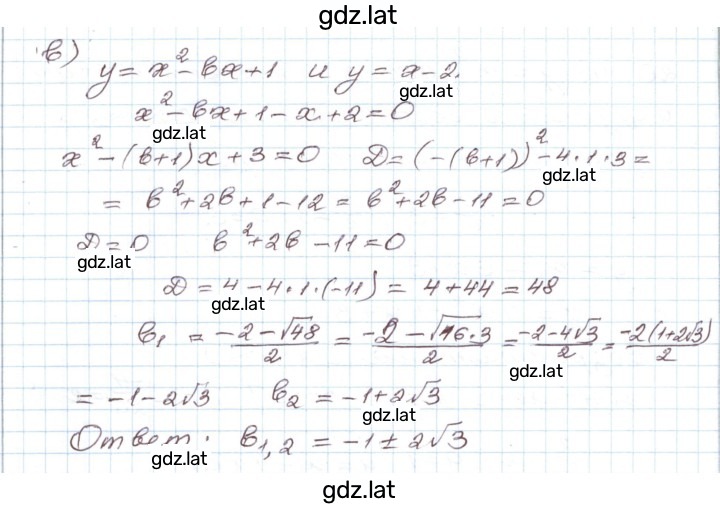 gdz.lat
в)
y = x² - вx + 1 и y = x - 2.
gdz.lat
x² - вx + 1 - x + 2 = 0
gdz.lat
x² - (в+1)x + 3 = 0 D = (-(в+1))² - 4·1·3 =
gdz.lat
= в² + 2в + 1 - 12 = в² + 2в - 11 = 0
D = 0 в² + 2в - 11 = 0
gdz.lat
D = 4 - 4·1·(-11) = 4 + 44 = 48
gdz.lat
в₁ = (-2 - √48)/2 = (-2 - √16·3)/2 = (-2 - 4√3)/2 = (-2(1 + 2√3))/2
gdz.lat
= -1 - 2√3 в₂ = -1 + 2√3
gdz.lat
Ответ: в₁,₂ = -1 ± 2√3
gdz.lat
gdz.lat